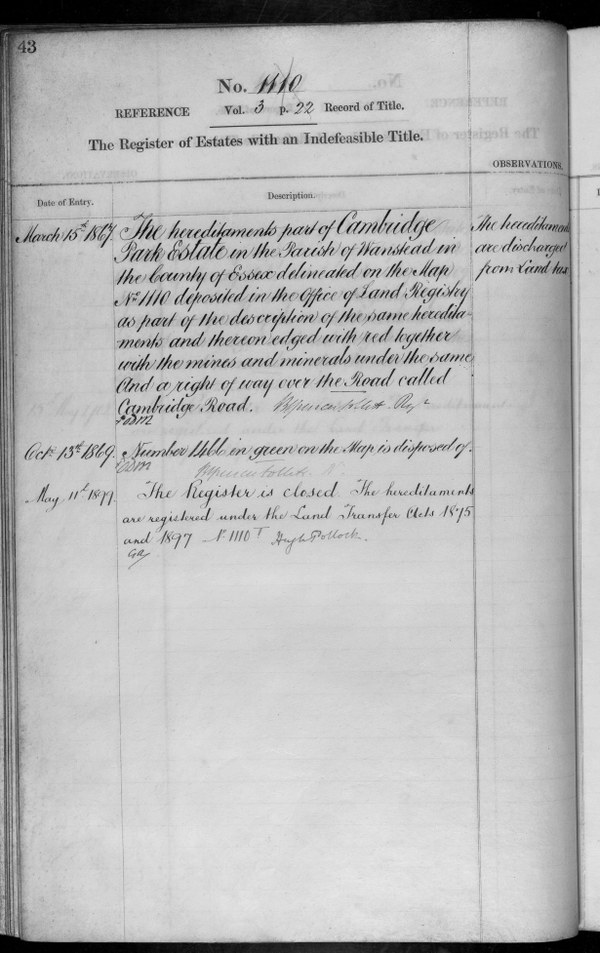 43
No. 1110
REFERENCE Vol. 3 p. 22 Record of Title.
The Register of Estates with an Indefeasible Title.
OBSERVATIONS.
Date of Entry.
Description.
March 15th 1867. The hereditaments part of Cambridge
Park Estate in the Parish of Wanstead in
the County of Essex delineated on the Map
No. 1110 deposited in the Office of Land Registry
as part of the description of the same heredita-
ments and thereon edged with red together
with the mines and minerals under the same
And a right of way over the Road called
Cambridge Road.
The hereditaments
are discharged
from Land tax
Octr. 13th 1869. Number 1466 in green on the Map is disposed of.
May 11th 1899 The Register is closed. The hereditaments
are registered under the Land Transfer Acts 1875
and 1897 No 1110 T Hugh Pollock.